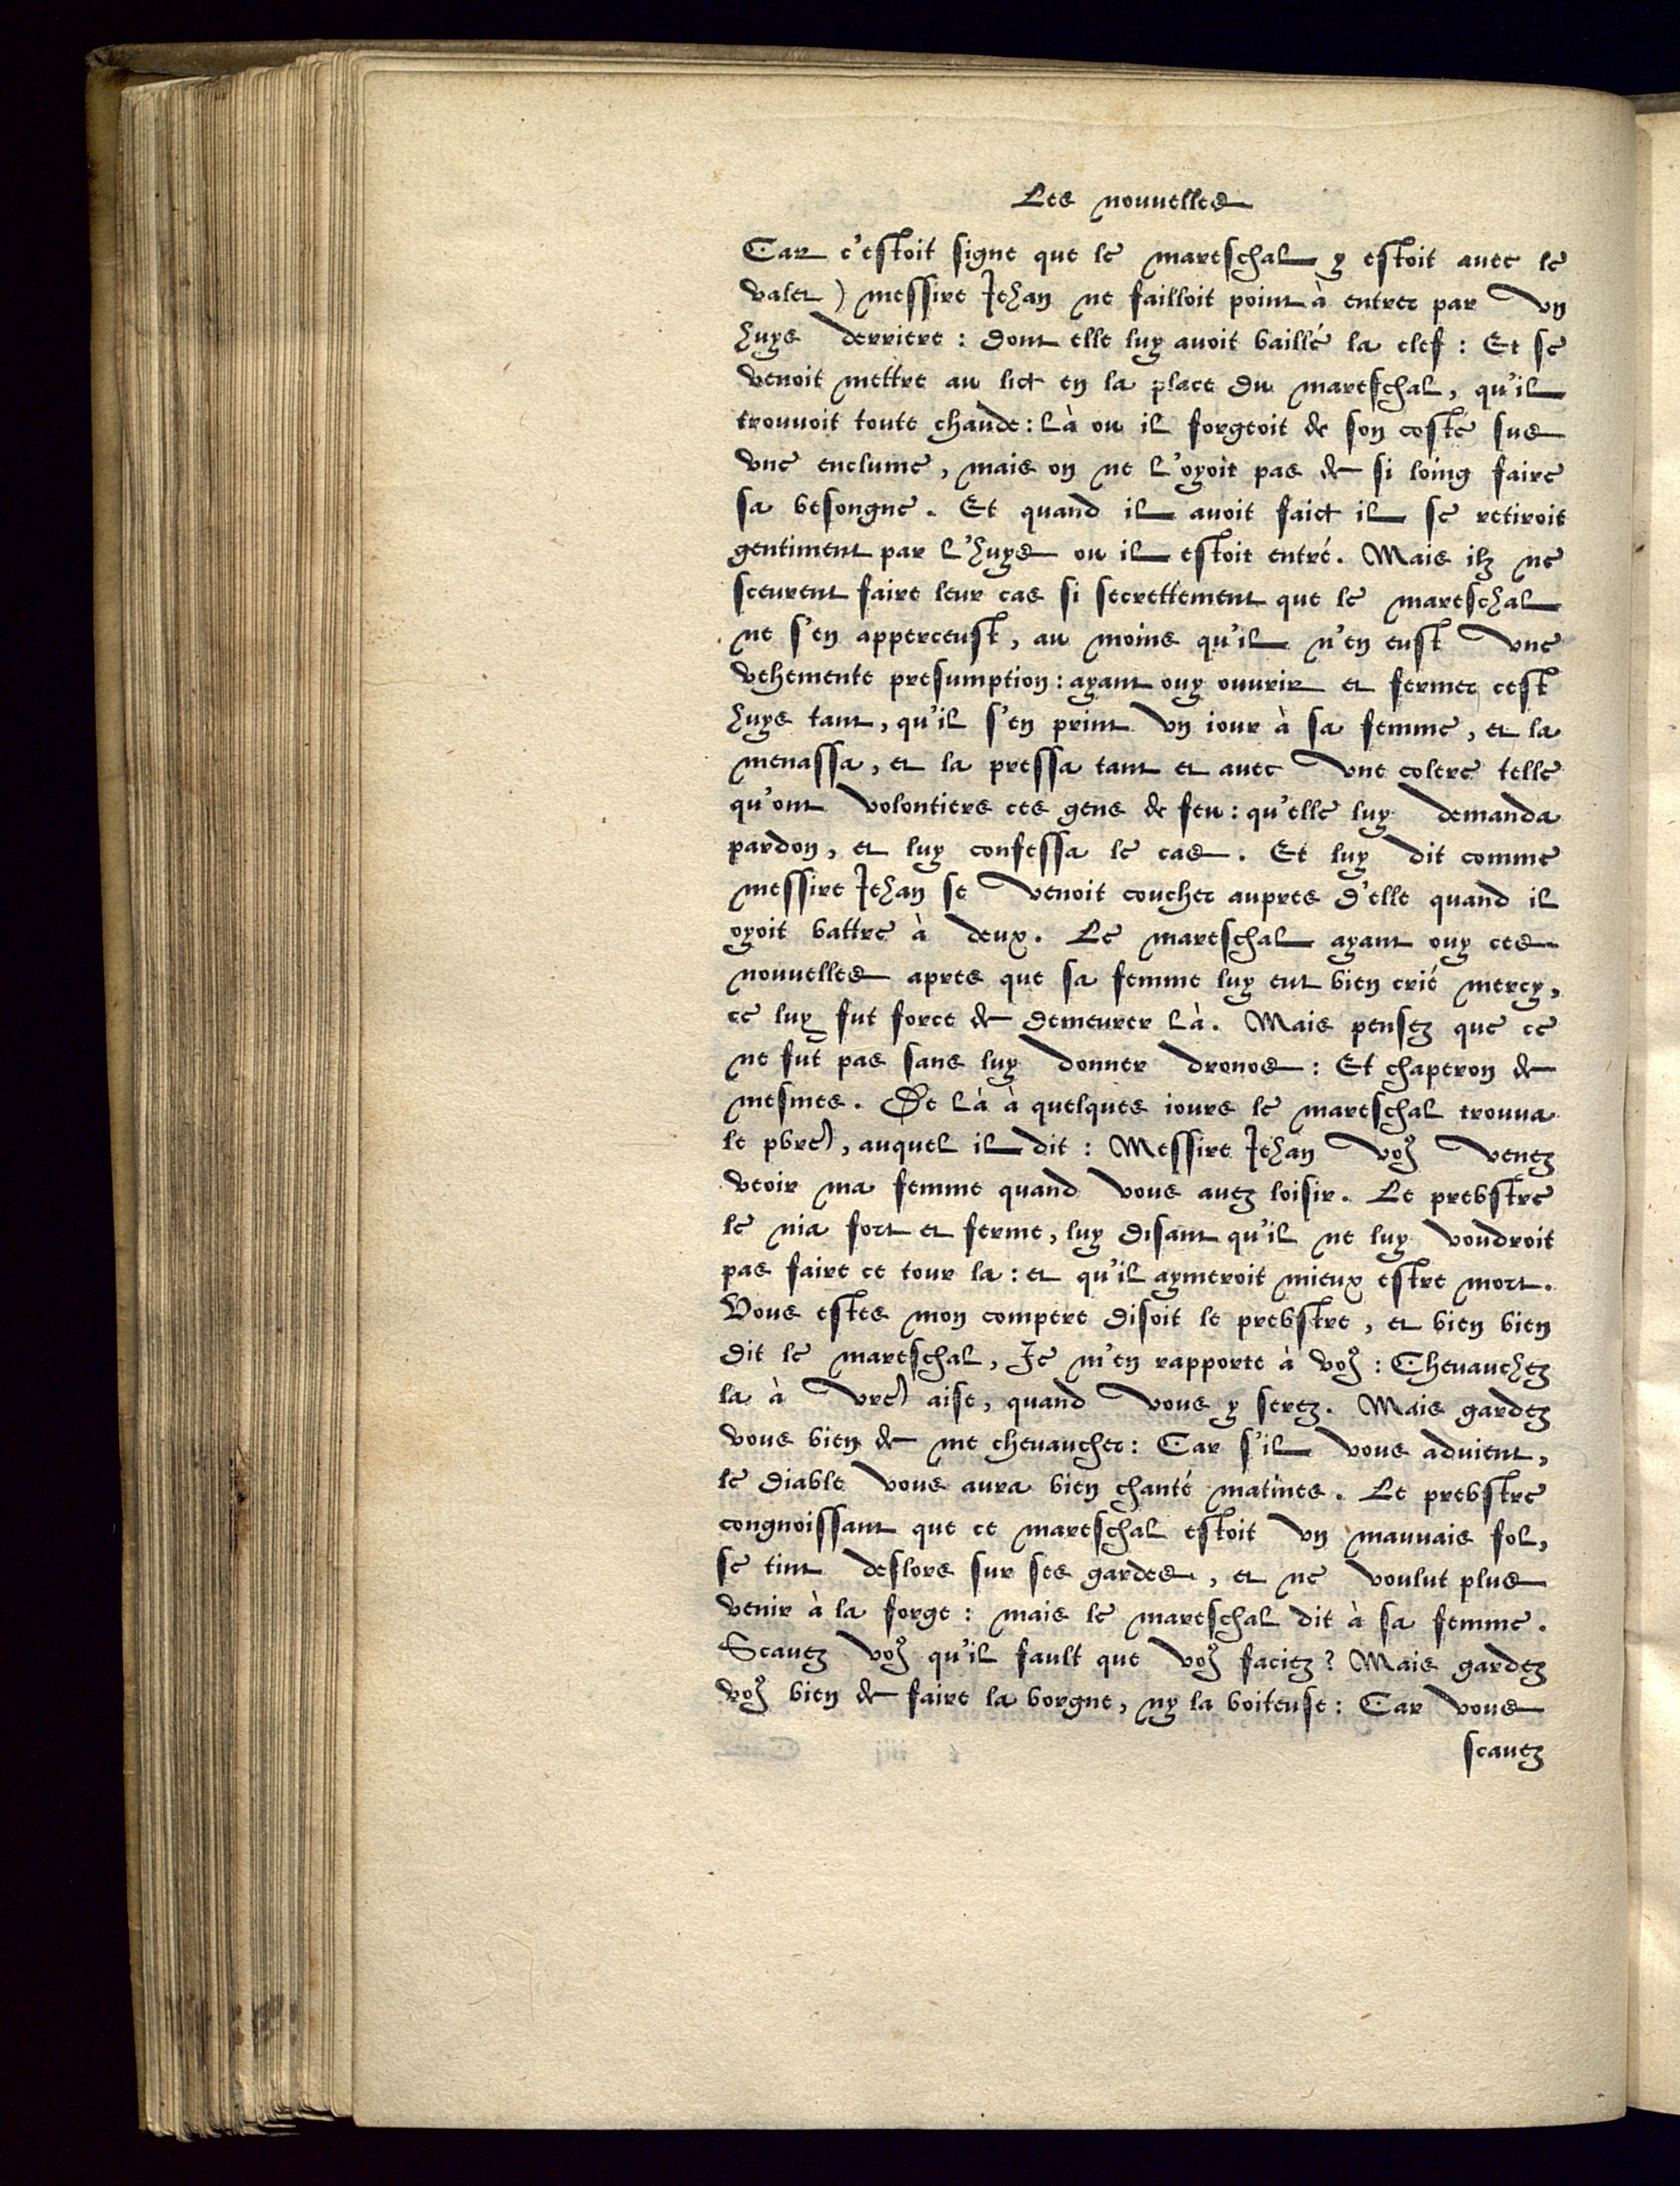 Les nouuelles
Car c'estoit signe que le mareschal y estoit auec le
valet) messire Jehan ne failloit point à entrer par vn
huys derriere : dont elle luy auoit baillé la clef : Et se
venoit mettre au lict en la place du mareschal, qu'il
trouuoit toute chaude : là ou il forgeoit de son costé sus
vne enclume, mais on ne l'oyoit pas de si loing faire
sa besongne. Et quand il auoit faict il se retiroit
gentiment par l'huys ou il estoit entré. Mais ilz ne
sceurent faire leur cas si secrettement que le mareschal
ne s'en apperceust, au moins qu'il n'en eust vne
vehemente presumption : ayant ouy ouurir et fermer cest
huys tant, qu'il s'en print vn iour à sa femme, et la
menassa, et la pressa tant et auec vne colere telle
qu'ont volontiers ces gens de feu : qu'elle luy demanda
pardon, et luy confessa le cas. Et luy dit comme
messire Jehan se venoit coucher aupres d'elle quand il
oyoit battre à deux. Le mareschal ayant ouy ces
nouuelles apres que sa femme luy eut bien crié mercy,
ce luy fut force de demeurer là. Mais pensez que ce
ne fut pas sans luy donner dronos : Et chaperon de
mesmes. De là à quelques iours le mareschal trouua
le pbre, auquel il dit : Messire Jehan voꝰ venez
veoir ma femme quand vous auez loisir. Le prebstre
le nia fort et ferme, luy disant qu'il ne luy voudroit
pas faire ce tour la : et qu'il aymeroit mieux estre mort.
Vous estes mon compere disoit le prebstre, et bien bien
dit le mareschal, Je m'en rapporte à voꝰ : Cheuauchez
la à vre aise, quand vous y serez. Mais gardez
vous bien de me cheuaucher : Car s'il vous aduient,
le diable vous aura bien chanté matines. Le prebstre
congnoissant que ce mareschal estoit vn mauuais fol,
se tint deslors sur ses gardes, et ne voulut plus
venir à la forge : mais le mareschal dit à sa femme.
Scauez voꝰ qu'il fault que voꝰ faciez ? Mais gardez
voꝰ bien de faire la borgne, ny la boiteuse : Car vous
scauez